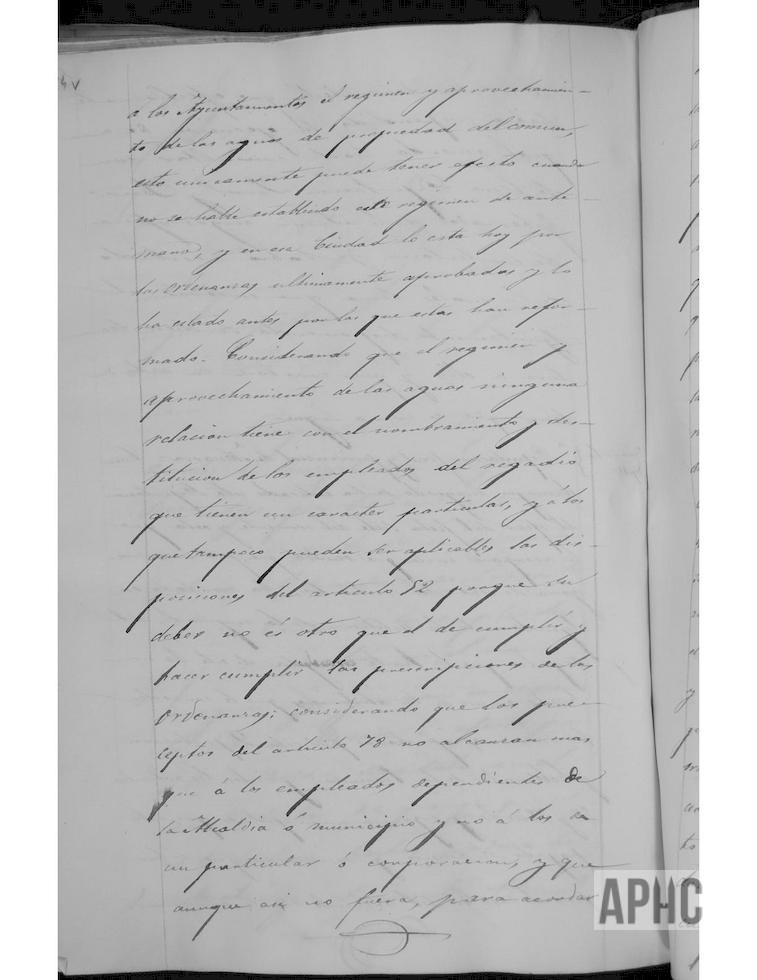 4v
á los Ayuntamientos el regimen y aprovechamien-
to de las aguas de propiedad del comun,
esto unicamente puede tener efecto cuando
no se halle establecido este regimen de ante-
mano, y en esa Ciudad lo esta hoy por
las Ordenanzas ultimamente aprobadas y lo
ha estado antes por las que estas han refor-
mado. Considerando que el regimen y
aprovechamiento de las aguas ninguna
relacion tiene con el nombramiento y des-
titucion de los empleados del regadio
que tienen un caracter particular, y á los
que tampoco pueden ser aplicables las dis-
posiciones del articulo 52 porque su
deber no és otro que el de cumplir y
hacer cumplir las prescripciones de las
Ordenanzas; considerando que los pre-
ceptos del articulo 78 no alcanzan mas
que á los empleados dependientes de
la Alcaldia ó municipio y no á los de
un particular ó corporacion, y que
aunque asi no fuera, para acordar
APHC